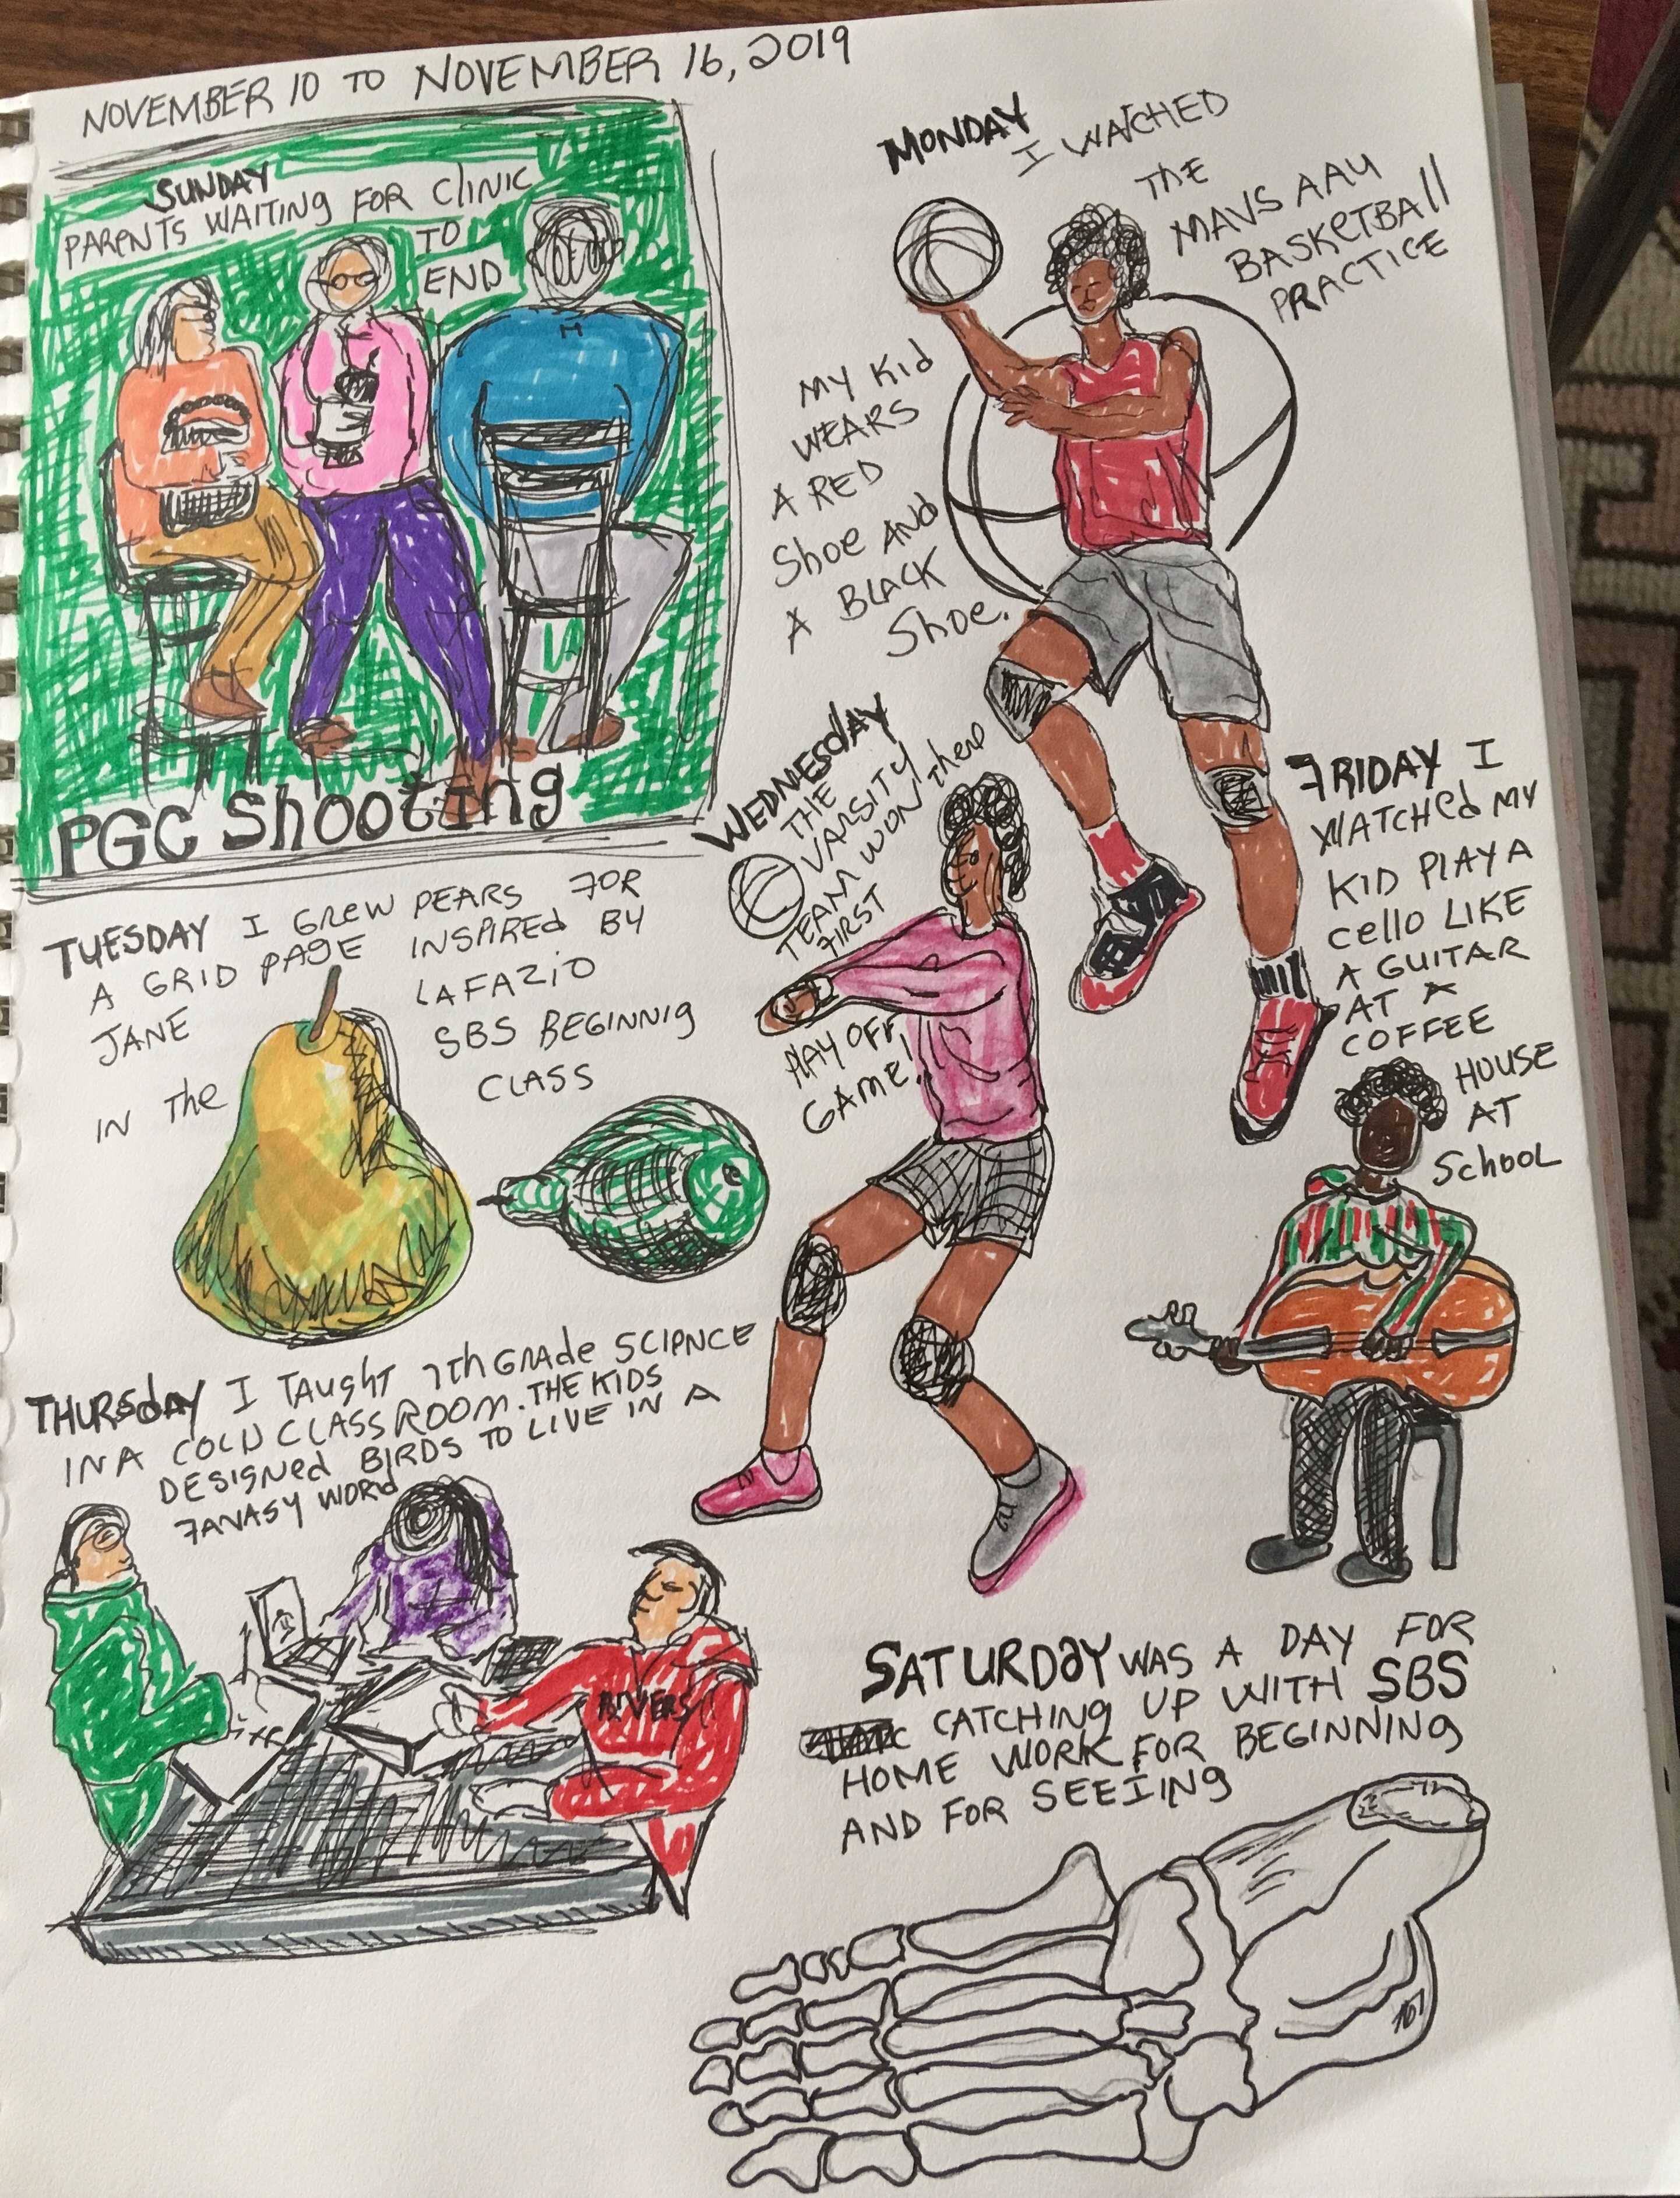 NOVEMBER 10 TO NOVEMBER 16, 2019
SUNDAY
PARENTS WAITING FOR CLINIC
TO
END
PGC Shooting
MONDAY
I WATCHED
THE
MAVS AAU
BASKETBALL
PRACTICE
MY KID
WEARS
A RED
SHOE AND
A BLACK
SHOE.
TUESDAY I GREW PEARS FOR
A GRID PAGE INSPIRED BY
JANE LAFAZIO
IN THE SBS BEGINNIG
CLASS
WEDNESDAY
THE
VARSITY
TEAM WON their
FIRST
PLAY OFF
GAME!
THURSDAY I TAUGHT 7TH GRADE SCIENCE
IN A COLD CLASSROOM. THE KIDS
DESIGNED BIRDS TO LIVE IN A
FANASY WORD
RIVERS
FRIDAY I
WATCHED MY
KID PLAY A
CELLO LIKE
A GUITAR
AT A
COFFEE
HOUSE
AT
SCHOOL
SATURDAY WAS A DAY FOR
CATCHING UP WITH SBS
HOME WORK FOR BEGINNING
AND FOR SEEIING